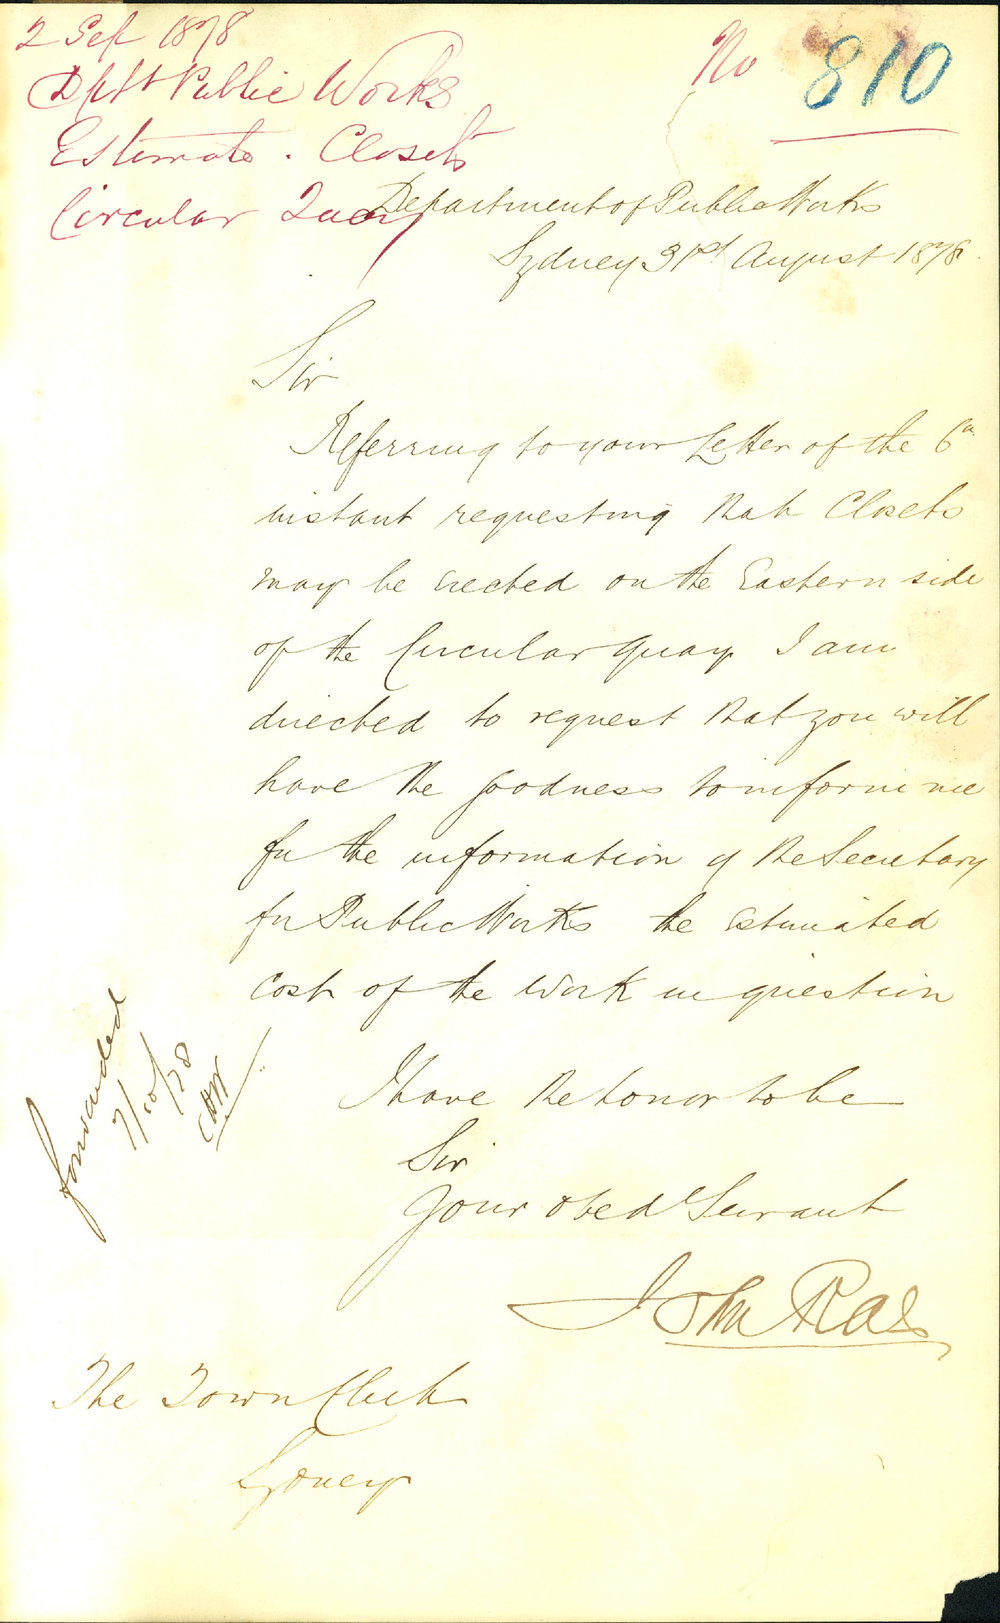 2 Sep 1878
Dptt Public Works
Estimate. Closets
Circular Quay
No 810
Department of Public Works
Sydney 31st August 1878
Sir
Referring to your Letter of the 6th
instant requesting that Closets
may be erected on the Eastern side
of the Circular Quay I am
directed to request that you will
have the goodness to inform me
for the information of the Secretary
for Public Works the estimated
cost of the work in question
I have the honor to be
Sir
Your obedt Servant
John Rae
The Town Clerk
Sydney
forwarded
7/10/78